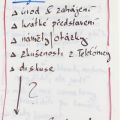 úvod & zahájení
krátké představení
náměty/otázky
zkušenosti z Teldómey
diskuse
?